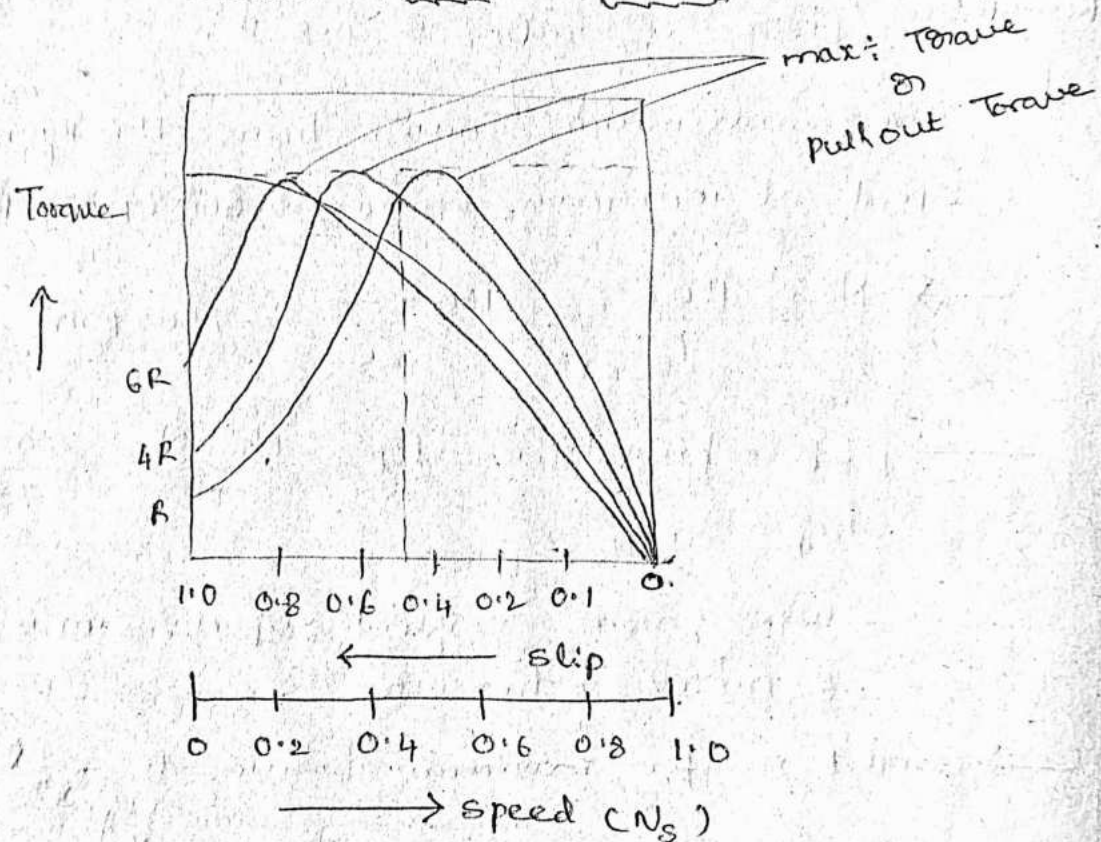 max÷ Torque
or
Pullout Torque
Torque
6R
4R
R
1.0 0.8 0.6 0.4 0.2 0.1 0.
slip
0 0.2 0.4 0.6 0.8 1.0
speed (Ns)